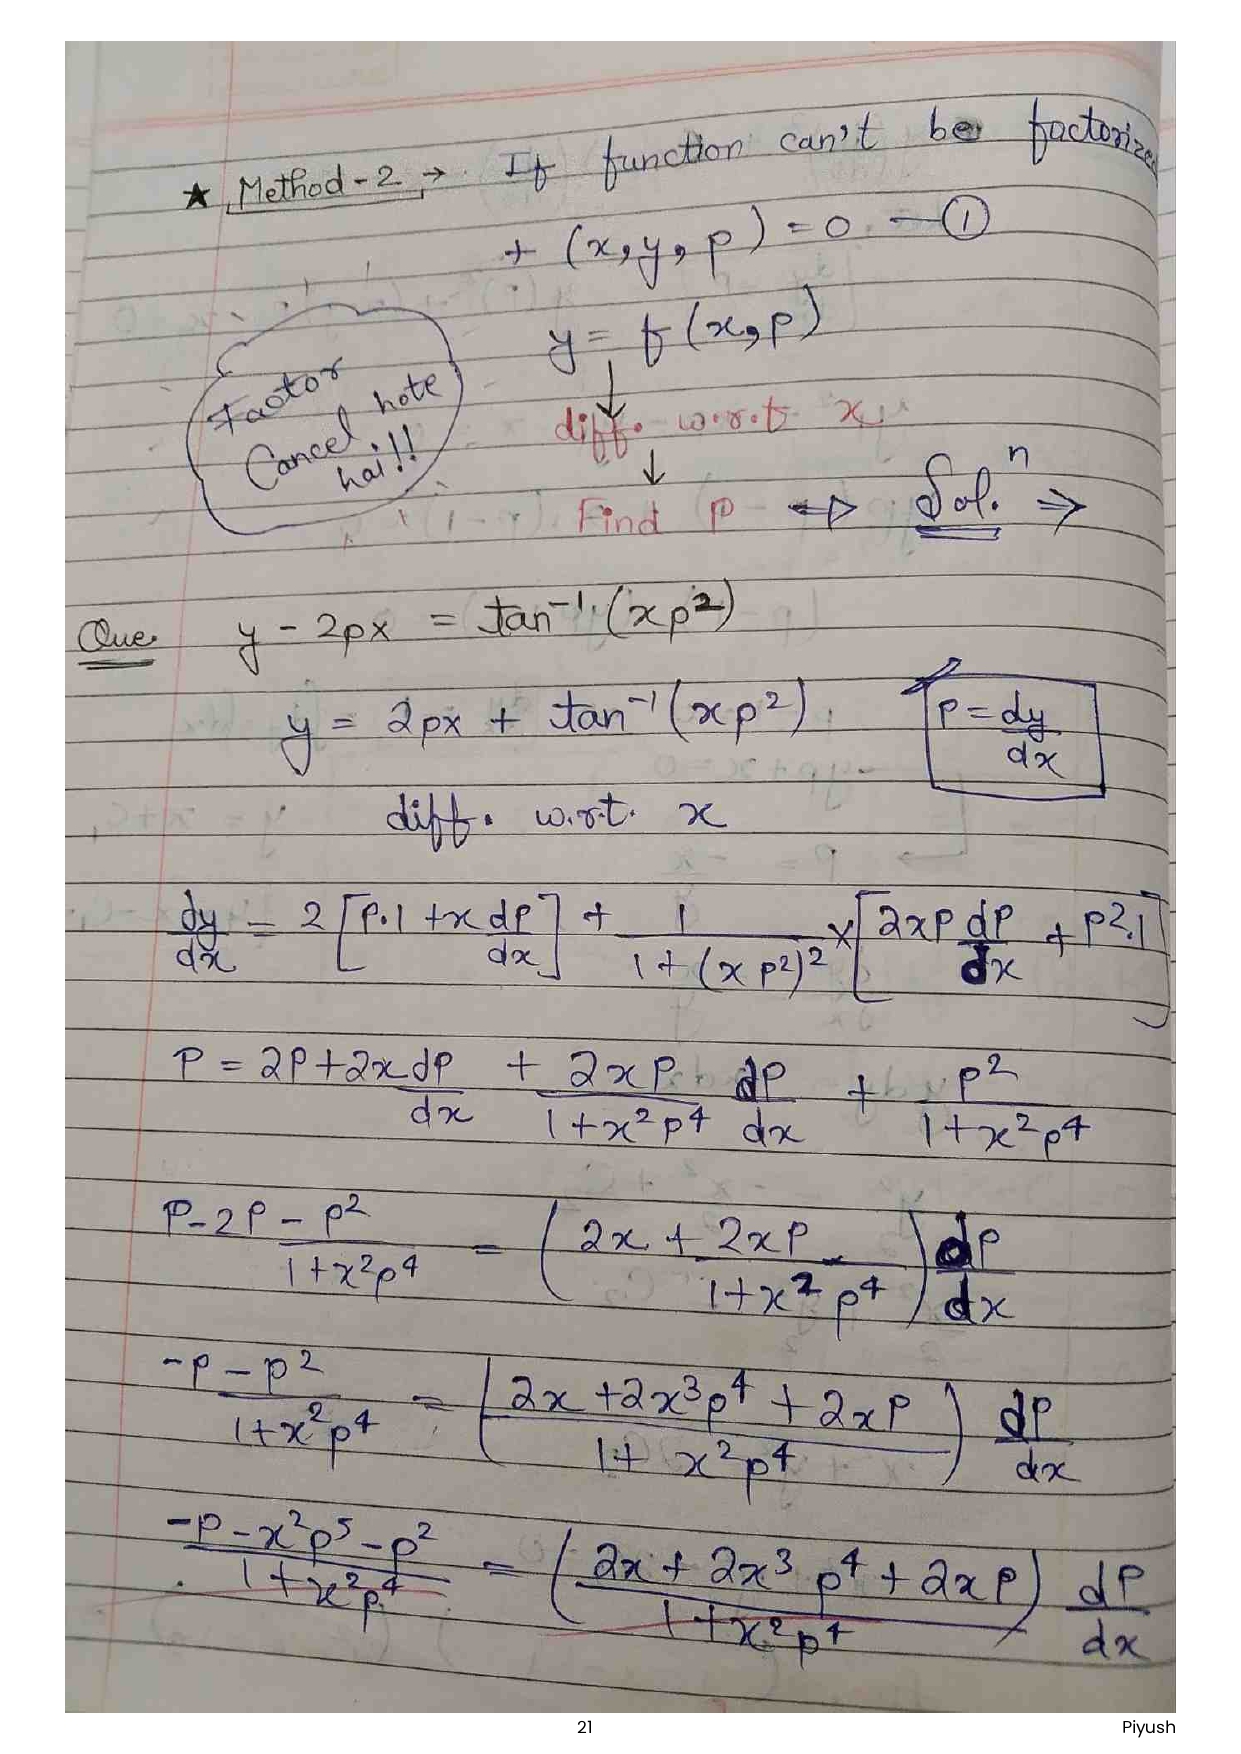 ★ Method-2 → If function can't be factorize
+ (x, y, p) = 0 — ①
y = f(x, p)
↓
diff. w.r.t. x
↓
Find p ⇒ Sol.ⁿ ⇒
Factor
Cancel hote
hai!!
Que. y - 2px = tan⁻¹(xp²)
y = 2px + tan⁻¹(xp²)
p = dy/dx
diff. w.r.t. x
dy/dx = 2[p.1 + x dp/dx] + 1/(1+(xp²)²) × [2xp dp/dx + p².1]
p = 2p + 2x dp/dx + 2xp/(1+x²p⁴) dp/dx + p²/(1+x²p⁴)
p - 2p - p²/(1+x²p⁴) = (2x + 2xp/(1+x²p⁴)) dp/dx
-p - p²/(1+x²p⁴) = ((2x + 2x³p⁴ + 2xp)/(1+x²p⁴)) dp/dx
(-p - x²p⁵ - p²)/(1+x²p⁴) = ((2x + 2x³p⁴ + 2xp)/(1+x²p⁴)) dp/dx
21 Piyush